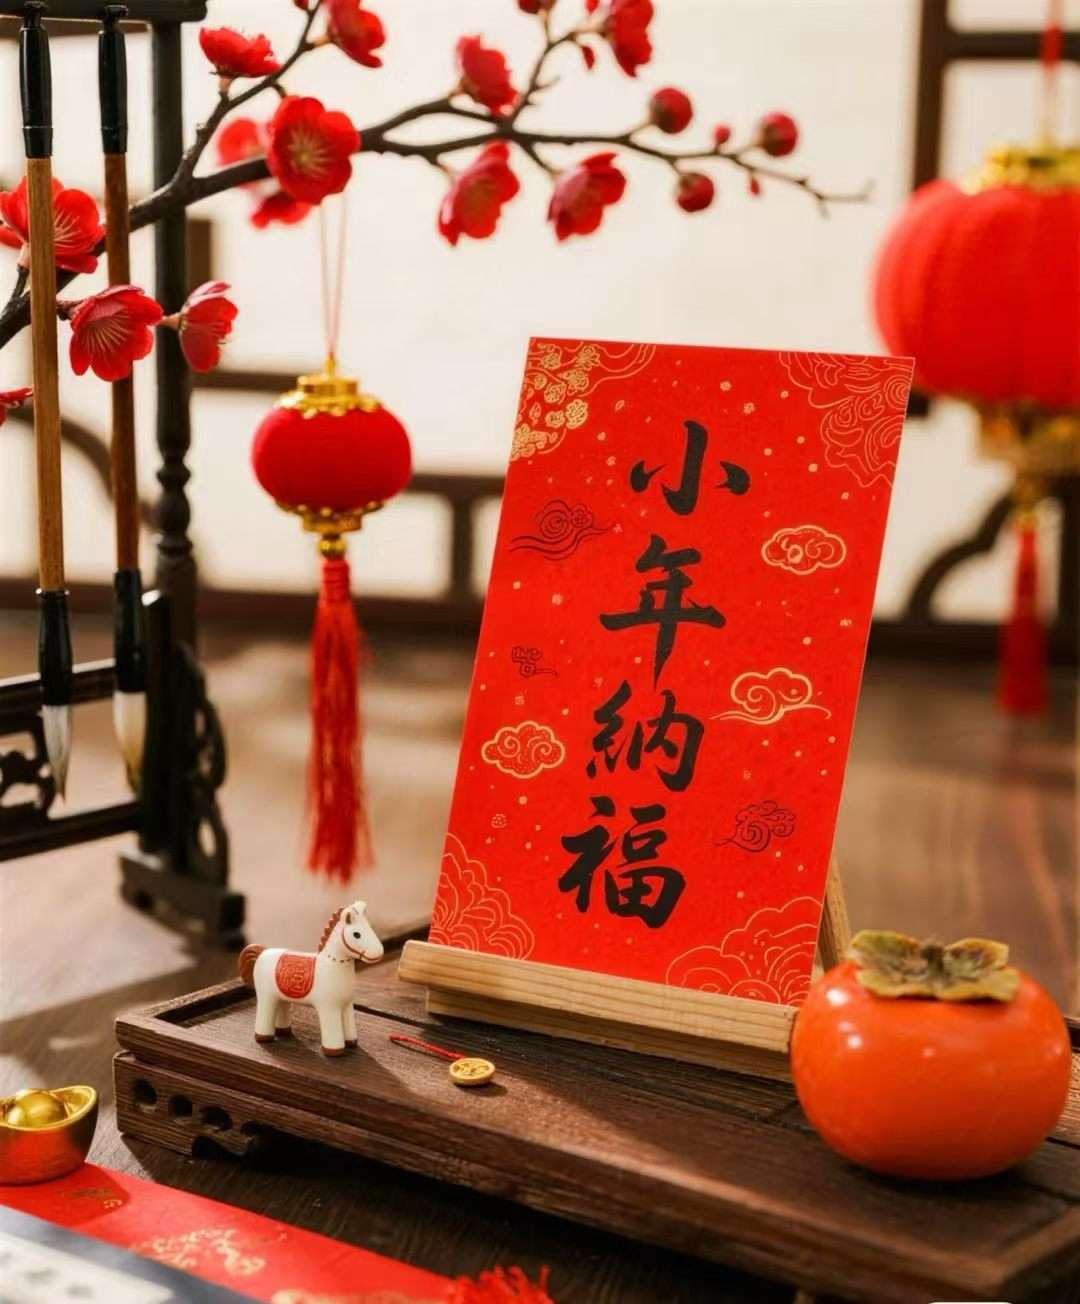 小年納福